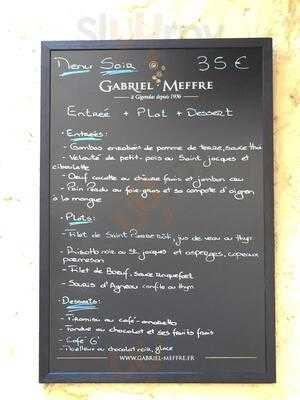 Menu Soir 35 €
GABRIEL MEFFRE
à Gigondas depuis 1936
Entrée + Plat + Dessert
• Entrées:
- Gambas en robe de pomme de terre, sauce thaï
- Velouté de petit-pois au Saint Jacques et
ciboulette
- Oeuf cocotte au chèvre frais et jambon cru
- Pain Perdu au foie-gras et sa compotée d'oignon
à la mangue
• Plats:
- Filet de Saint Pierre rôti, jus de veau au thym
- Risotto noir au St. jacques et asperges, copeaux
parmesan
- Filet de Boeuf, sauce roquefort
- Souris d'Agneau confite au thym
• Desserts:
- Tiramisu au café-amaretto
- Fondue au chocolat et ses fruits frais
- Café "G"
- au chocolat noir, glace
WWW.GABRIEL-MEFFRE.FR